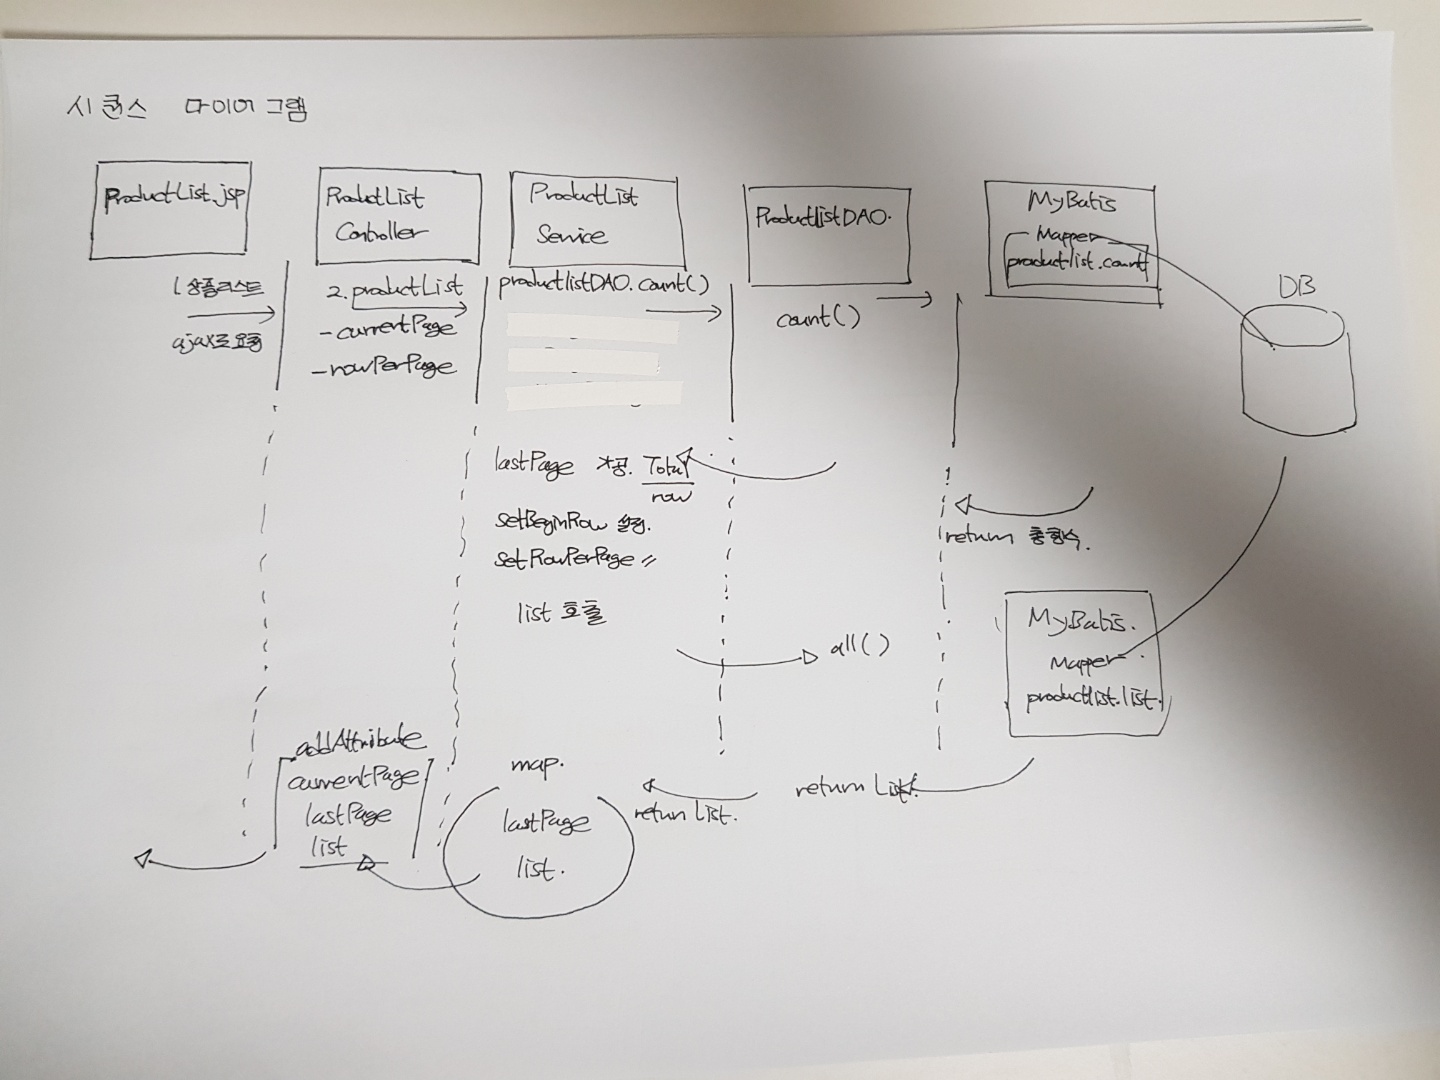 시퀀스 다이어그램
ProductList.jsp
ProductList
Controller
ProductList
Service
ProductlistDAO.
MyBatis
Mapper
productlist.count
DB
1 상품리스트
ajax로 요청
2. productList
- currentPage
- rowPerPage
productlistDAO.count()
count()
lastPage Total
row
setBeginRow 설정.
setRowPerPage 〃
list 호출
return 총행수.
all()
MyBatis.
Mapper
productlist.list.
addAttribute
currentPage
lastPage
list
map.
lastPage
list.
return List.
return List.